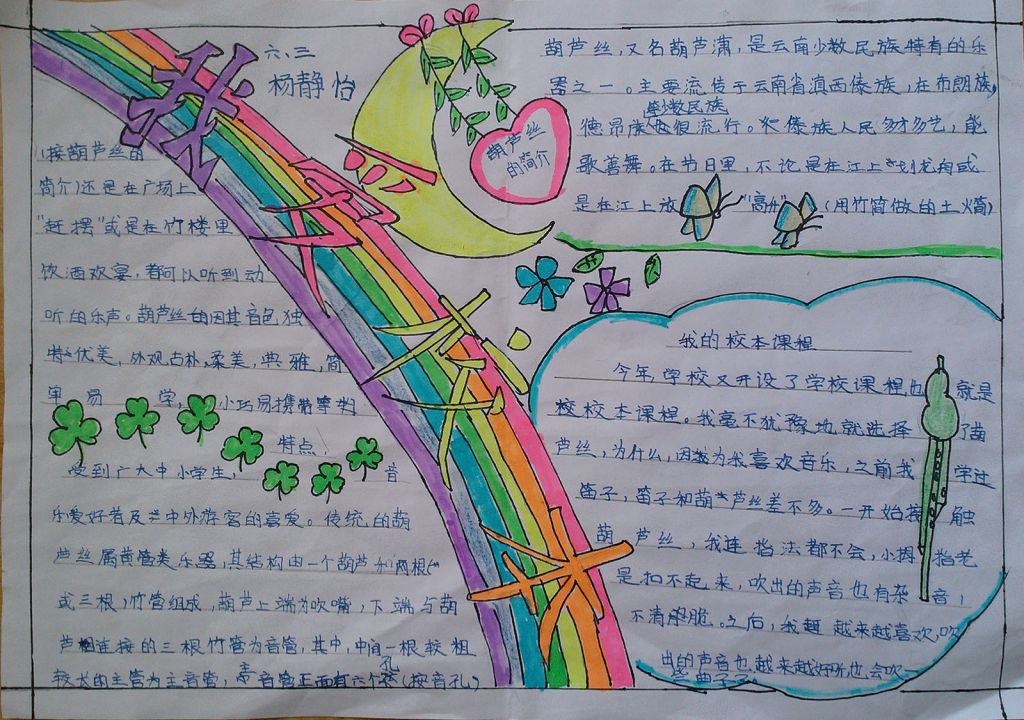 我爱音乐
六、三
杨静怡
葫芦丝
的简介
葫芦丝,又名葫芦潇,是云南少数民族特有的乐
器之一。主要流传于云南省滇西傣族,在布朗族,
德昂族等少数民族也很流行。傣族人民多才多艺,能
歌善舞。在节日里,不论是在江上划龙舟或
是在江上放"高升"(用竹筒做的土火箭)
(接葫芦丝的
简介)还是在广场上
"赶摆"或是在竹楼里
饮酒欢宴,都可以听到动
听的乐声。葫芦丝的因其音色独
特优美,外观古朴,柔美,典雅,简
单易学,小巧易携带等
特点,
受到广大中小学生,音
乐爱好者及中外游客的喜爱。传统的葫
芦丝属簧管类乐器,其结构由一个葫芦和两根(
或三根)竹管组成,葫芦上端为吹嘴,下端与葫
芦相连接的三根竹管为音管,其中,中间一根较粗
较长的主管为主音管,主音管正面有六个孔(按音孔)
我的校本课程
今年,学校又开设了学校课程也就是
校校本课程。我毫不犹豫地就选择了葫
芦丝,为什么,因为我喜欢音乐,之前我学过
笛子,笛子和葫芦丝差不多。一开始接触
葫芦丝,我连指法都不会,小拇指老
是扣不起来,吹出的声音也有杂音,
不清脆。之后,我越来越喜欢,吹
出的声音也越来越好听也会吹一
些曲子了